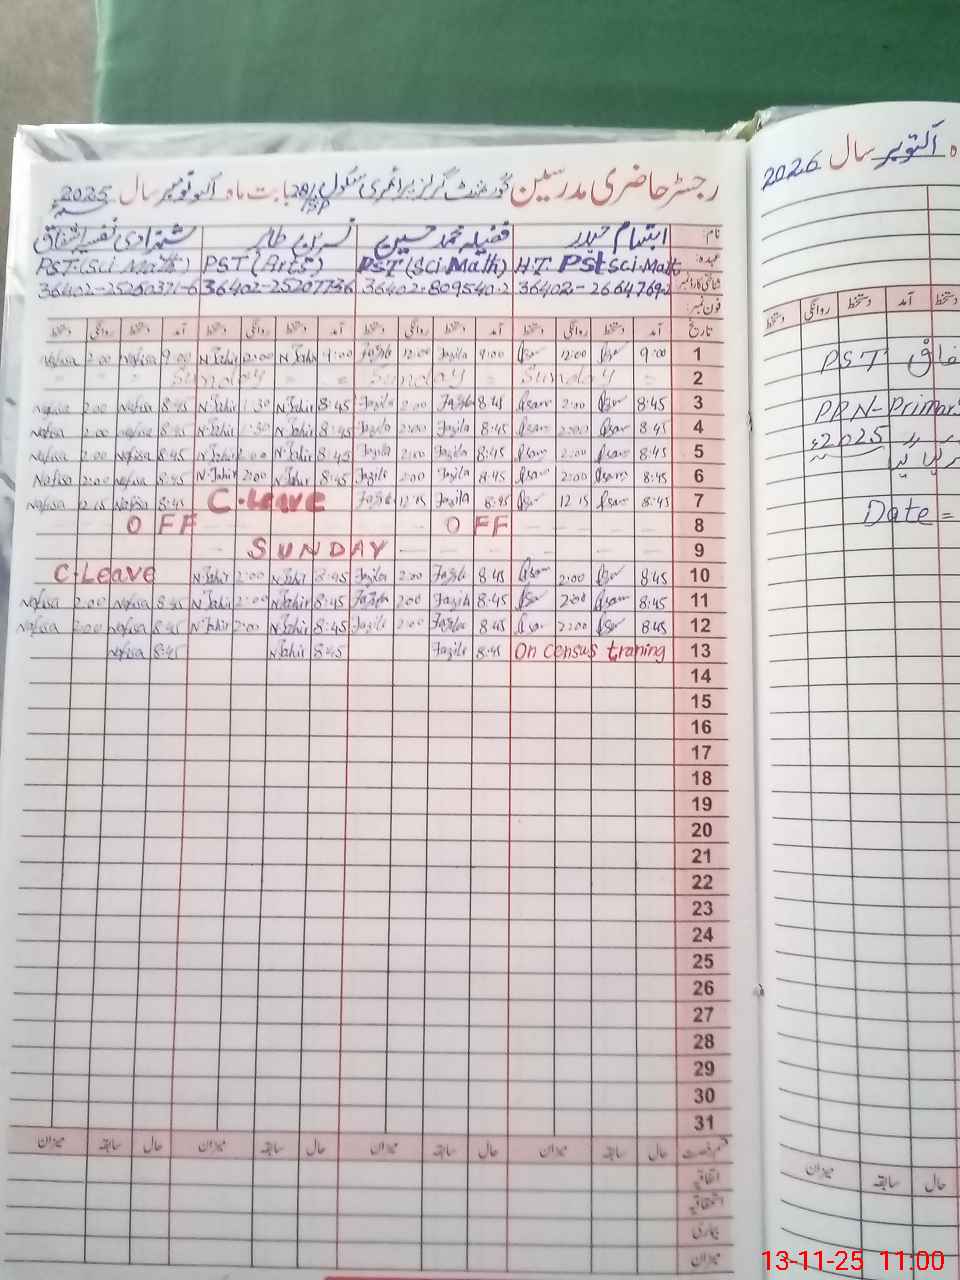 رجسٹر حاضری مدرسین گورنمنٹ گرلز پرائمری سکول بابت ماہ نومبر سال 2025
نام ابتسام حیدر فضیلہ محمد حسین نسرین طاہر شہزادی نفیسہ اشفاق
عہدہ HT PST Sci.Math PST (Sci Math) PST (Arts) PST (Sci Math)
شناختی کارڈ نمبر 36402-2664769-2 36402-809540-2 36402-25207736 36402-25250371-6
فون نمبر
تاریخ آمد دستخط روانگی دستخط آمد دستخط روانگی دستخط آمد دستخط روانگی دستخط آمد دستخط روانگی دستخط
1 9:00 12:00 9:00 Fazila 12:00 Fazila 9:00 N.Tahir N.Tahir 9:00 Nafisa 2:00 Nafisa
2 Sunday Sunday Sunday
3 8:45 2:00 8:45 Fazila 2:00 Fazila 8:45 N.Tahir 1:30 N.Tahir 8:45 Nafisa 2:00 Nafisa
4 8:45 2:00 8:45 Fazila 2:00 Fazila 8:45 N.Tahir 1:30 N.Tahir 8:45 Nafisa 2:00 Nafisa
5 8:45 2:00 8:45 Fazila 2:00 Fazila 8:45 N.Tahir 2:00 N.Tahir 8:45 Nafisa 2:00 Nafisa
6 8:45 2:00 8:45 Fazila 2:00 Fazila 8:45 N.Tahir 2:00 N.Tahir 8:45 Nafisa 2:00 Nafisa
7 8:45 12:15 8:45 Fazila 12:15 Fazila C.Leave 8:45 Nafisa 12:15 Nafisa
8 OFF OFF
9 SUNDAY
10 8:45 2:00 8:45 Fazila 2:00 Fazila 8:45 N.Tahir 2:00 N.Tahir C.Leave
11 8:45 2:00 8:45 Fazila 2:00 Fazila 8:45 N.Tahir 2:00 N.Tahir 8:45 Nafisa 2:00 Nafisa
12 8:45 2:00 8:45 Fazila 2:00 Fazila 8:45 N.Tahir 2:00 N.Tahir 8:45 Nafisa 2:00 Nafisa
13 On census traning 8:45 Fazila 8:45 N.Tahir 8:45 Nafisa
14
15
16
17
18
19
20
21
22
23
24
25
26
27
28
29
30
31
قسم رخصت حال سابقہ میزان حال سابقہ میزان حال سابقہ میزان حال سابقہ میزان
اتفاقیہ
استحقاقیہ
بیماری
میزان
ہ اکتوبر سال 2026
دستخط آمد دستخط روانگی دستخط
PST
PRN-Primary
2025
Date =
حال سابقہ میزان
13-11-25 11:00